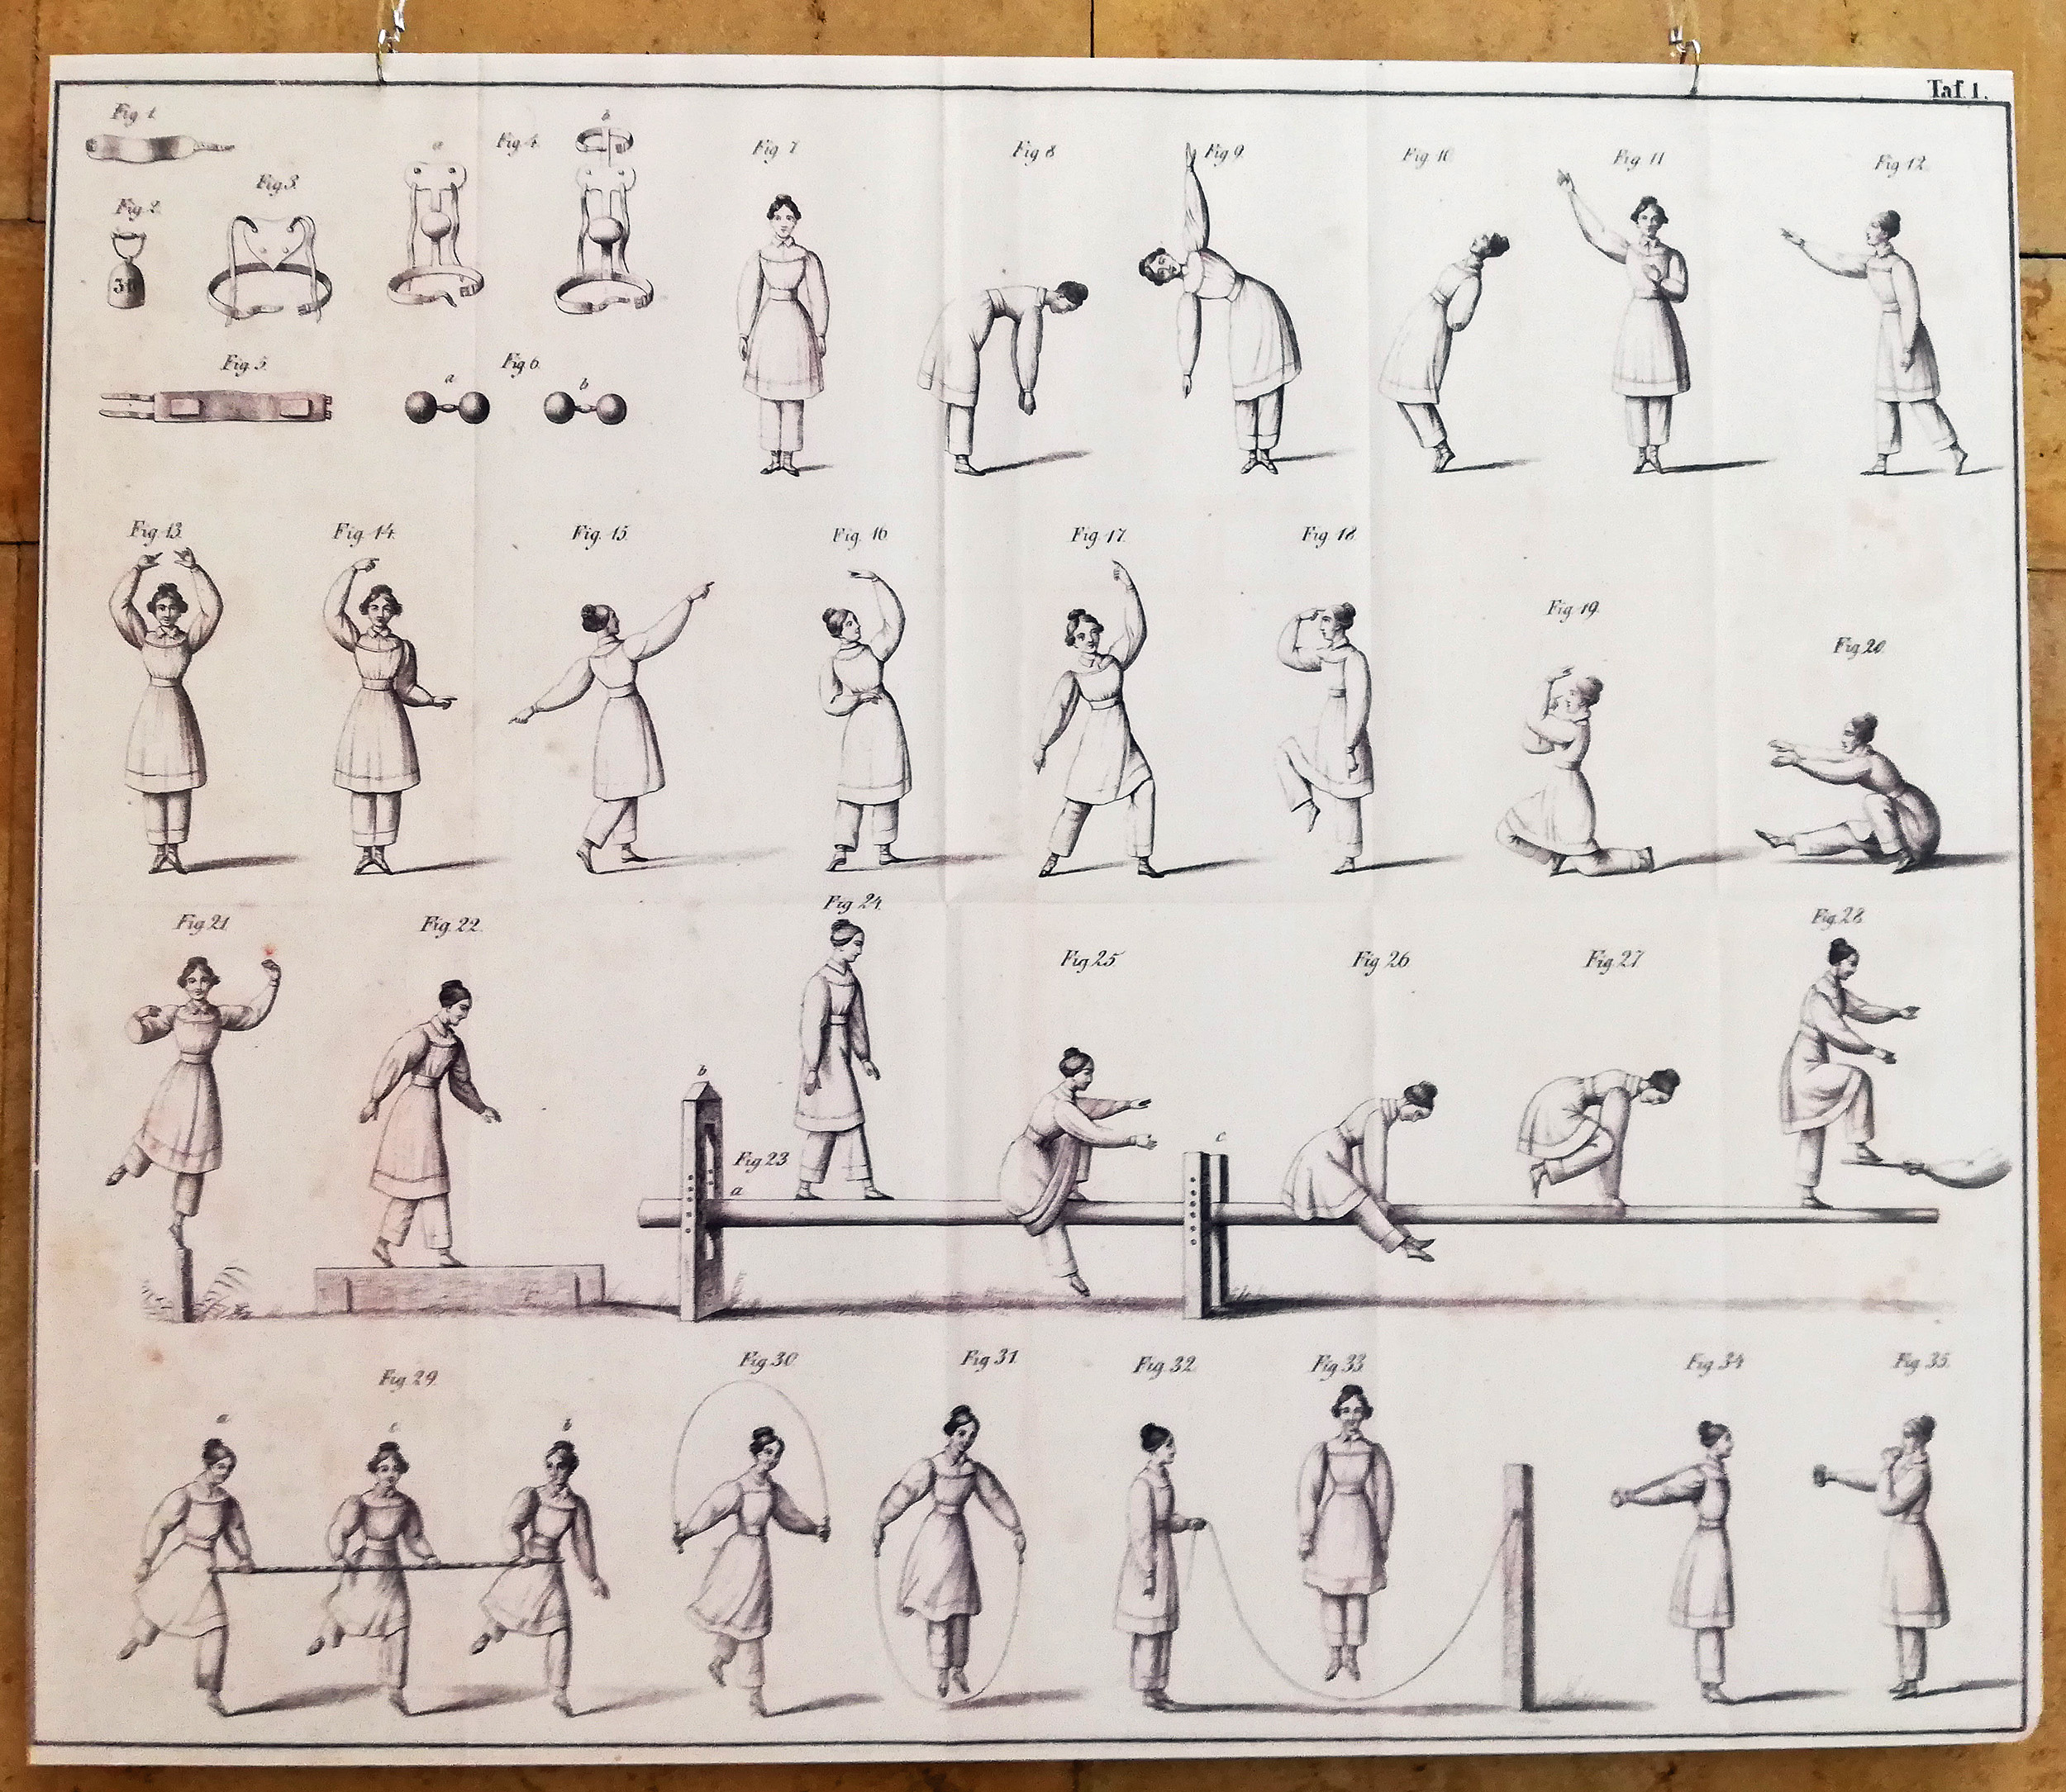 Taf. 1.
Fig 1.
Fig. 2.
30
Fig 3.
Fig 4.
a
b
Fig. 5.
Fig 6.
a
b
Fig 7
Fig 8
Fig 9.
Fig. 10.
Fig 11
Fig 12.
Fig 13.
Fig 14.
Fig. 15.
Fig. 16
Fig. 17.
Fig. 18.
Fig 19.
Fig 20.
Fig 21
Fig. 22.
Fig 23
a
b
c
Fig 24.
Fig 25.
Fig 26
Fig 27
Fig 28.
Fig 29.
a
c
b
Fig 30
Fig 31
Fig 32
Fig 33
Fig 34
Fig 35.